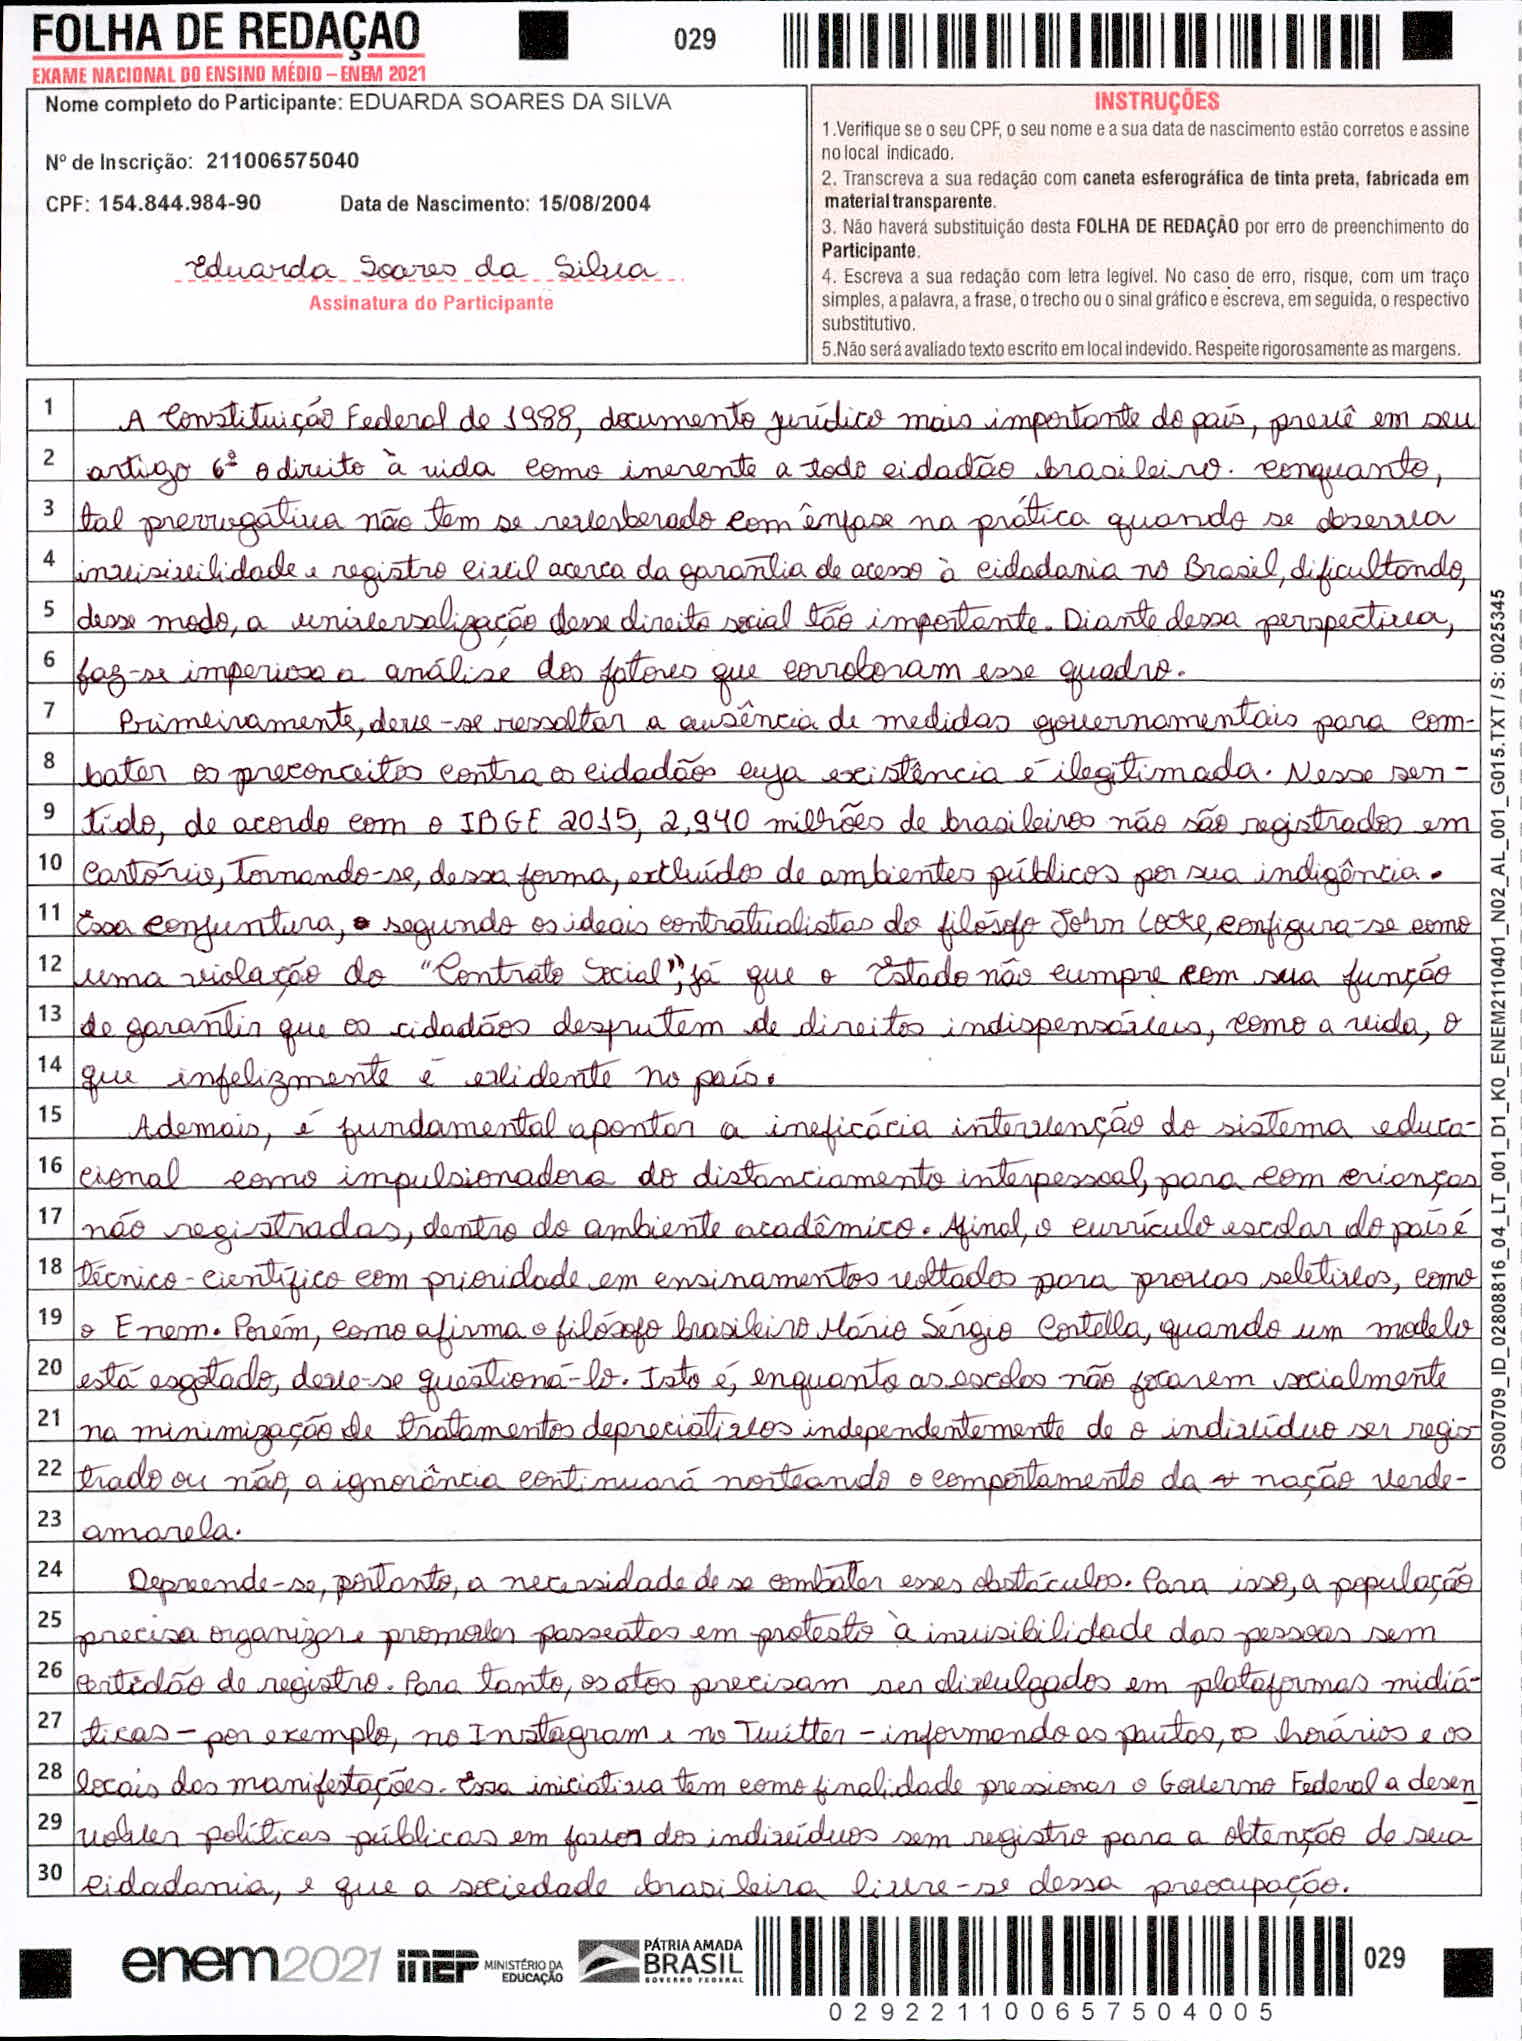 FOLHA DE REDAÇÃO
029
EXAME NACIONAL DO ENSINO MÉDIO – ENEM 2021
Nome completo do Participante: EDUARDA SOARES DA SILVA
Nº de Inscrição: 211006575040
CPF: 154.844.984-90 Data de Nascimento: 15/08/2004
Eduarda Soares da Silva
Assinatura do Participante
INSTRUÇÕES
1.Verifique se o seu CPF, o seu nome e a sua data de nascimento estão corretos e assine
no local indicado.
2. Transcreva a sua redação com caneta esferográfica de tinta preta, fabricada em
material transparente.
3. Não haverá substituição desta FOLHA DE REDAÇÃO por erro de preenchimento do
Participante.
4. Escreva a sua redação com letra legível. No caso de erro, risque, com um traço
simples, a palavra, a frase, o trecho ou o sinal gráfico e escreva, em seguida, o respectivo
substitutivo.
5.Não será avaliado texto escrito em local indevido. Respeite rigorosamente as margens.
1 A Constituição Federal de 1988, documento jurídico mais importante do país, prevê em seu
2 artigo 6º o direito à vida como inerente a todo cidadão brasileiro. Conquanto,
3 tal prerrogativa não tem se reverberado com ênfase na prática quando se observa
4 invisivilidade e registro civil acerca da garantia de acesso à cidadania no Brasil, dificultando,
5 desse modo, a universalização desse direito social tão importante. Diante dessa perspectiva,
6 faz-se imperiosa a análise dos fatores que corroboram esse quadro.
7 Primeiramente, deve-se ressaltar a ausência de medidas governamentais para com-
8 bater os preconceitos contra os cidadãos cuja existência é ilegitimada. Nesse sen-
9 tido, de acordo com o IBGE 2015, 2,940 milhões de brasileiros não são registrados em
10 Cartório, tornando-se, dessa forma, excluídos de ambientes públicos por sua indigência.
11 Essa conjuntura, segundo os ideais contratualistas do filósofo John Locke, configura-se como
12 uma violação do "Contrato Social", já que o Estado não cumpre com sua função
13 de garantir que os cidadãos desfrutem de direitos indispensáveis, como a vida, o
14 que infelizmente é evidente no país.
15 Ademais, é fundamental apontar a ineficácia intervenção do sistema educa-
16 cional como impulsionadora do distanciamento interpessoal, para com crianças
17 não registradas, dentro do ambiente acadêmico. Afinal, o currículo escolar do país é
18 técnico-científico com prioridade em ensinamentos voltados para provas seletivos, como
19 o Enem. Porém, como afirma o filósofo brasileiro Mário Sérgio Cortella, quando um modelo
20 está esgotado, deve-se questioná-lo. Isto é, enquanto as escolas não focarem socialmente
21 na minimização de tratamentos depreciativos independentemente de o indivíduo ser regis-
22 trado ou não, a ignorância continuará norteando o comportamento da nação verde-
23 amarela.
24 Depreende-se, portanto, a necessidade de se combater esses obstáculos. Para isso, a população
25 precisa organizar e promover passeatas em protesto à invisibilidade das pessoas sem
26 certidão de registro. Para tanto, os atos precisam ser divulgados em plataformas midiá-
27 ticas – por exemplo, no Instagram e no Twitter – informando as pautas, os horários e os
28 locais das manifestações. Essa iniciativa tem como finalidade pressionar o Governo Federal a desen
29 volver políticas públicas em favor dos indivíduos sem registro para a obtenção de sua
30 cidadania, e que a sociedade brasileira livre-se dessa preocupação.
OS00709_ID_02808816_04_LT_001_D1_K0_ENEM2110401_N02_AL_001_G015.TXT / S: 0025345
enem2021
INEP
MINISTÉRIO DA
EDUCAÇÃO
PÁTRIA AMADA
BRASIL
GOVERNO FEDERAL
029
029221100657504005